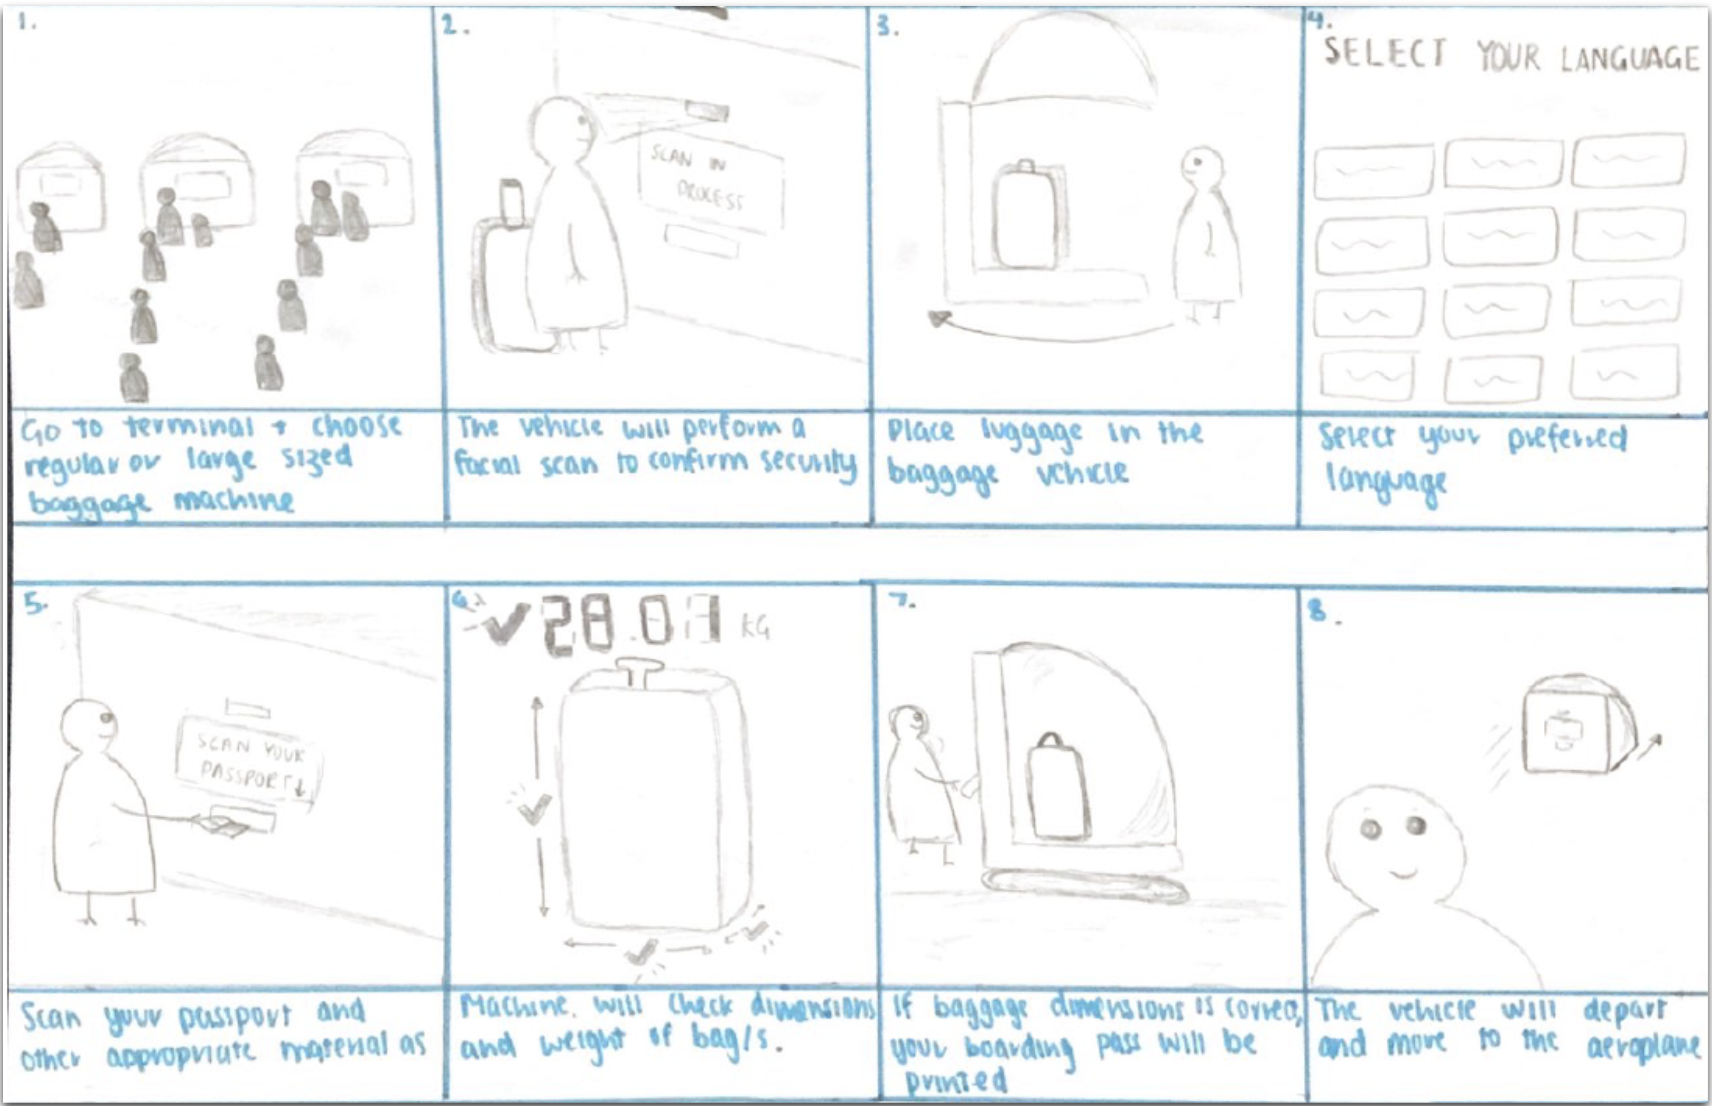 1.
Go to terminal + choose
regular or large sized
baggage machine
2.
SCAN IN
PROCESS
The vehicle will perform a
facial scan to confirm security
3.
Place luggage in the
baggage vehicle
4.
SELECT YOUR LANGUAGE
Select your preferred
language
5.
SCAN YOUR
PASSPORT↓
Scan your passport and
other appropriate material as
6.
✓28.01 KG
Machine. will check dimensions
and weight of bag/s.
7.
If baggage dimensions is correct,
your boarding pass will be
printed
8.
The vehicle will depart
and move to the aeroplane